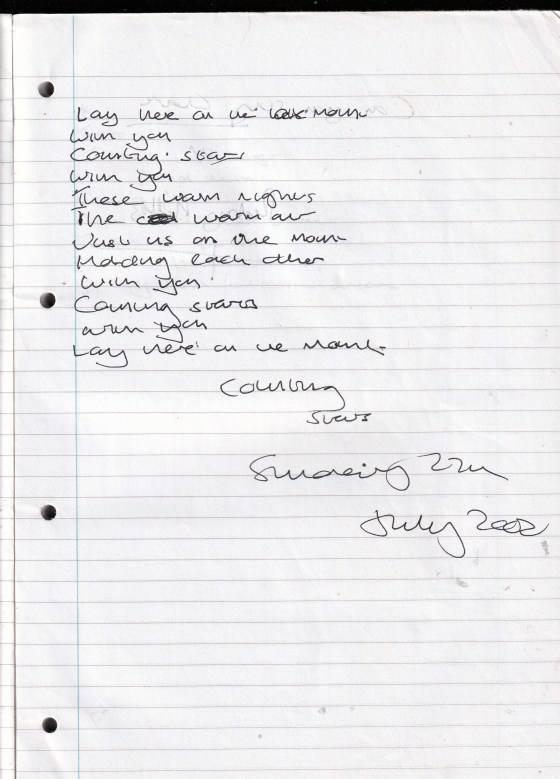 Lay here on the
with you
Counting stars
with you
These warm nights
The warm air
Just us on the
Holding each other
with you
Counting stars
with you
Lay here on the
Counting
stars
July 2002